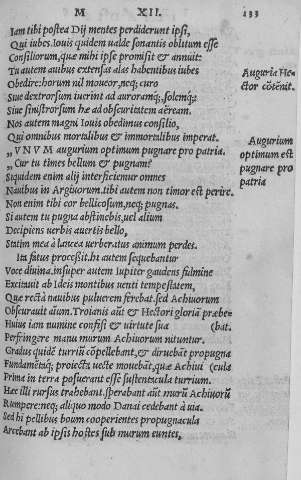 M XII. 133
Iam tibi postea Dij mentes perdiderunt ipsi,
Qui iubes Iouis quidem ualde sonantis oblitum esse
Consiliorum, quæ mihi ipse promisit & annuit:
Tu autem auibus extensas alas habentibus iubes
Obedire: horum nil moueor, neq; curo
Siue dextrorsum iuerint ad auroramq;, solemq;
Siue sinistrorsum hæ ad obscuritatem aëream.
Nos autem magni Iouis obedimus consilio,
Qui omnibus mortalibus & immortalibus imperat.
„VNVM augurium optimum pugnare pro patria.
„Cur tu times bellum & pugnam?
Siquidem enim alij interficiemur omnes
Nauibus in Argiuorum. tibi autem non timor est perire.
Non enim tibi cor bellicosum, neq; pugnax.
Si autem tu pugna abstinebis, uel alium
Decipiens uerbis auertis bello,
Statim mea à lancea uerberatus animum perdes.
Ita fatus processit. hi autem sequebantur
Voce diuina. insuper autem Iupiter gaudens fulmine
Excitauit ab Ideis montibus uenti tempestatem,
Quæ rectà nauibus puluerem ferebat. sed Achiuorum
Obscurault aĩum. Troianis aũt & Hectori gloriã præbe-
Huius iam numine confisi & uirtute sua (bat.
Perfringere manu murum Achiuorum nituntur.
Gradus quidẽ turriũ cõpellebant, & diruebãt propugna
Fundamẽtaq; proiecta uecte mouebãt, quæ Achiui (cula
Prima in terra posuerant esse sustentacula turrium.
Hæc illi rursus trahebant. sperabant aũt murũ Achiuorũ
Rumpere: neq; aliquo modo Danai cedebant à uia.
Sed hi pellibus boum cooperientes propugnacula
Arcebant ab ipsis hostes sub murum euntes,
Auguria He-
ctor cõtẽnit.
Augurium
optimum est
pugnare pro
patria